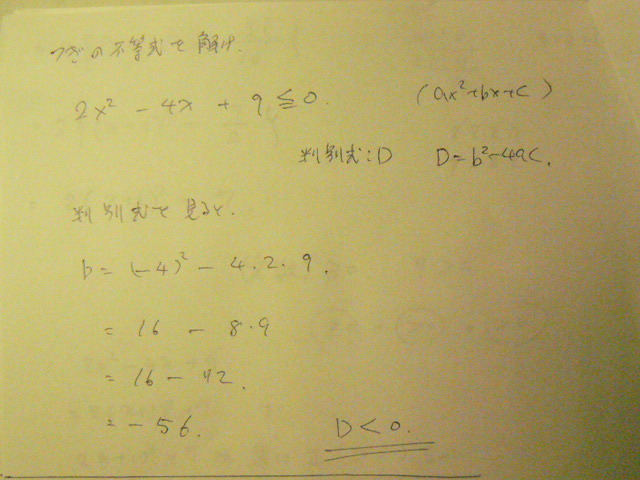 つぎの不等式を解け.
2x² - 4x + 9 ≦ 0. (ax²+bx+c)
判別式:D D=b²-4ac.
判別式で見ると.
D = (-4)² - 4・2・9.
= 16 - 8・9
= 16 - 72.
= -56. D < 0.